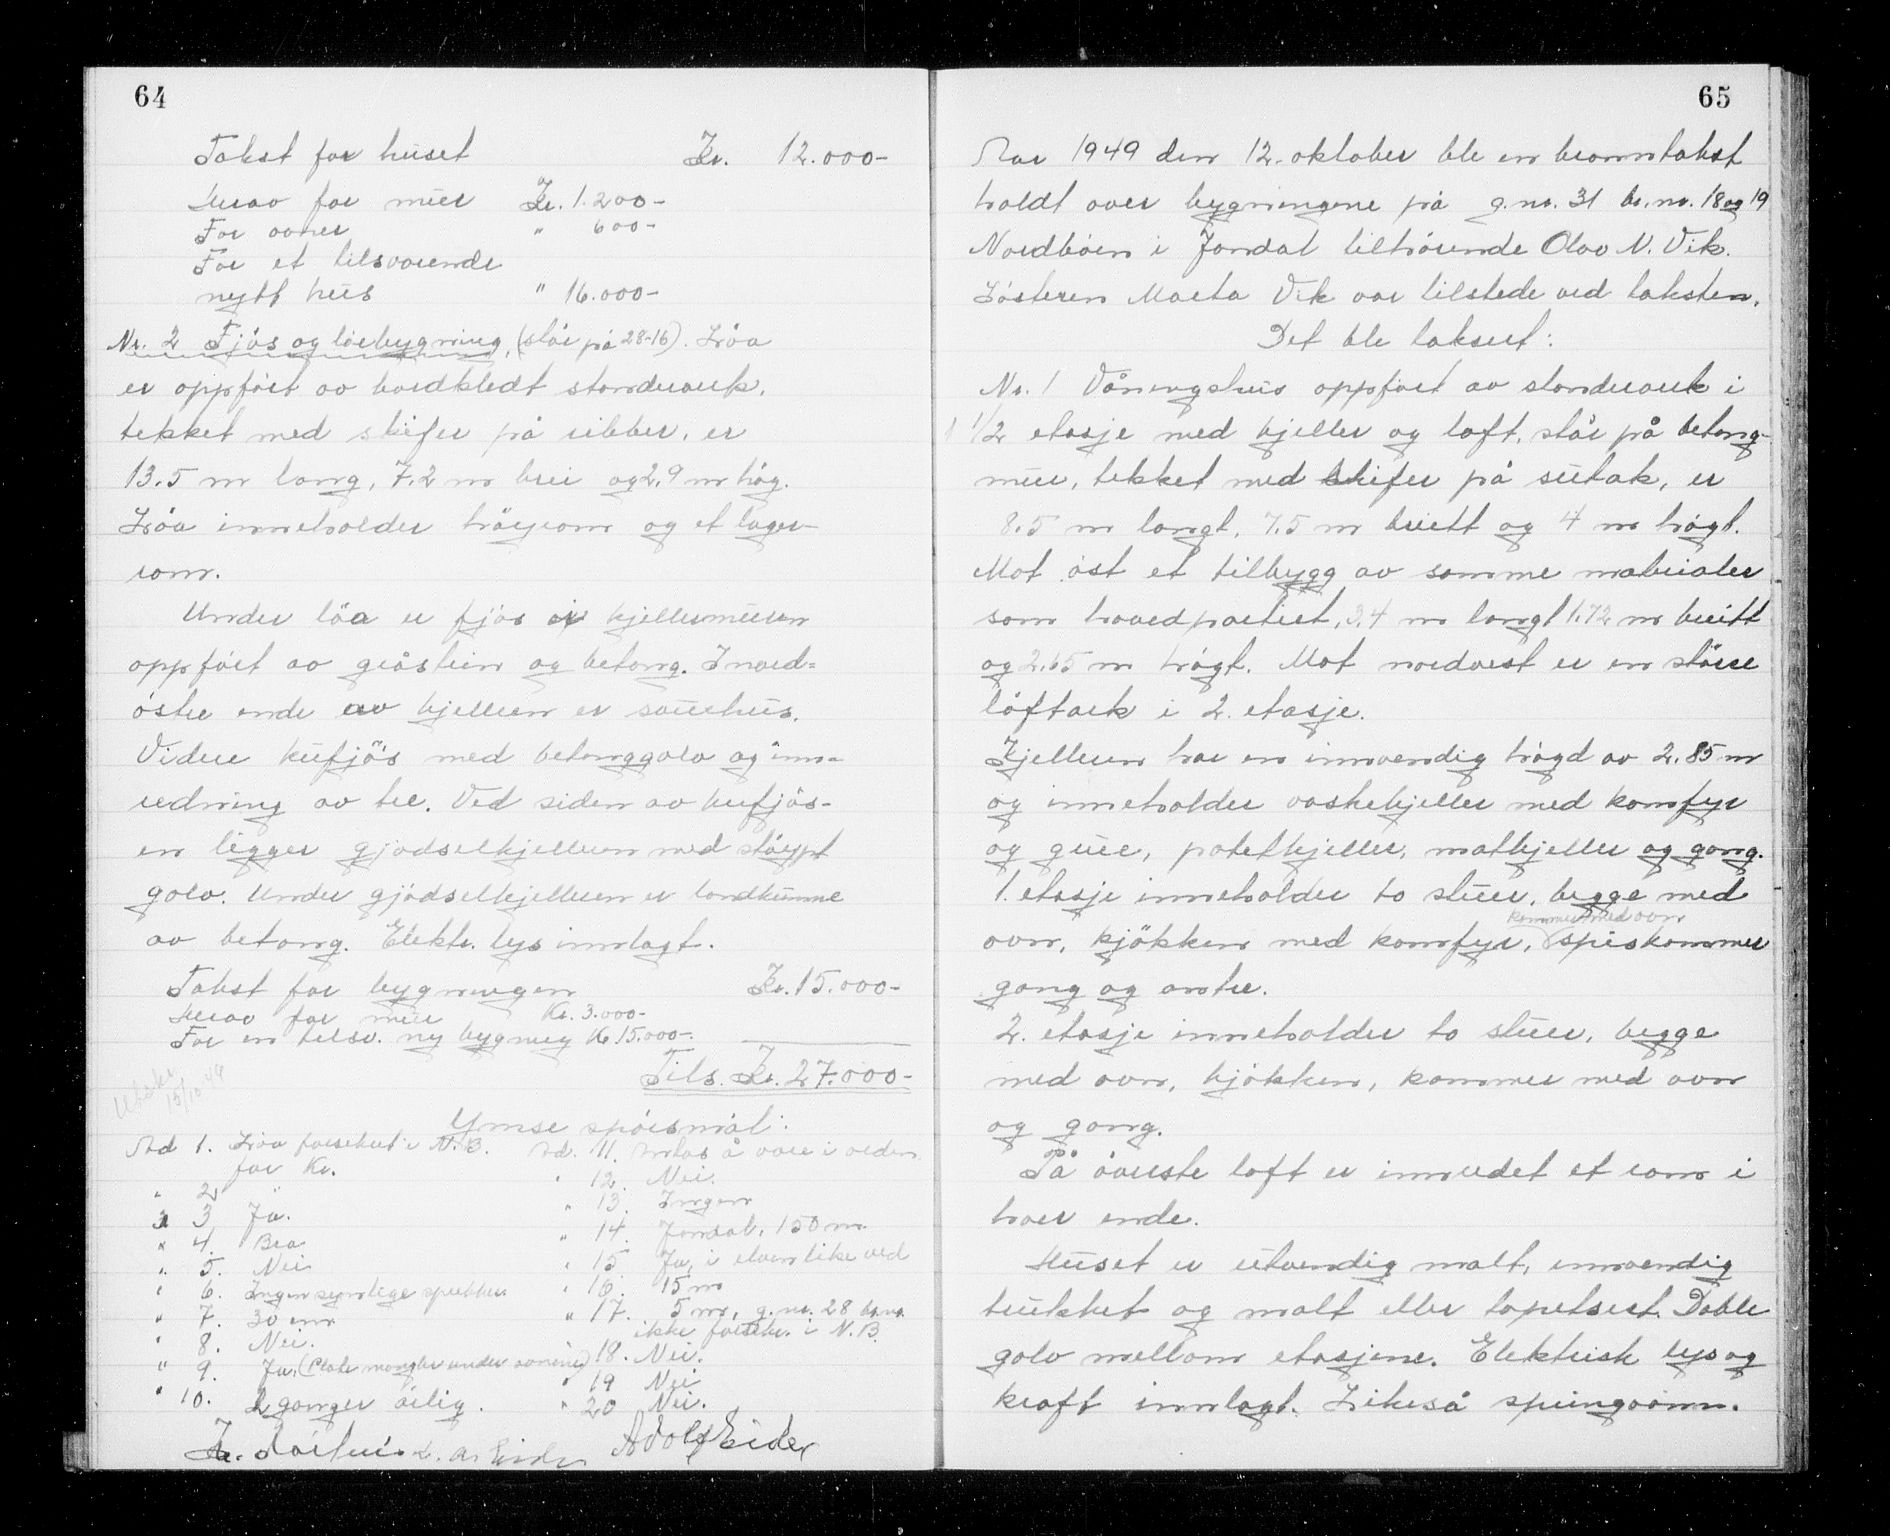 64
Takst for huset Kr. 12.000-
Herav for mur Kr. 1.200-
For ovner " 600-
For et tilsvarende
nytt hus " 16.000-
Nr. 2 Fjös og löebygning, (står på 28-16). Löa
er oppfört av bordkledt standerverk,
tekket med skifer på ribber, er
13.5 m lang, 7.2 m brei og 2.9 m hög.
Löa inneholder höyrom og et lager-
rom.
Under löa er fjös i kjellermuren
oppfört av gråstein og betong. I nord-
östre ende av kjelleren er sauehus.
Videre kufjös med betonggolv og inn-
redning av tre. Ved siden av kufjös-
en ligger gjödselkjelleren med stöypt
golv. Under gjödselkjelleren er landkumme
av betong. Elektr. lys innlagt.
Takst for bygningen Kr. 15.000-
Herav for mur Kr. 3.000-
For en tilsv. ny bygning Kr 15.000-
Tils. Kr. 27.000-
Utskr. 15/10 49
Ymse spörsmål:
Ad 1. Löa forsikret i N.B. for Kr.
" 2
" 3 Ja.
" 4. Bra
" 5. Nei
" 6. Ingen synlige sprekker
" 7. 30 cm
" 8. Nei.
" 9. Ja, (Plate mangler under ovnene)
" 10. 2 ganger årlig.
Ad. 11. Antas å være i orden.
" 12. Nei.
" 13. Ingen
" 14. Jondal, 150 m
" 15 Ja, i elven like ved
" 16. 15 m
" 17. 5 m, g.nr. 28 br.nr.
ikke forsikr. i N.B.
" 18. Nei.
" 19 Nei
" 20 Nei.
Adolf Eide
65
Aar 1949 den 12. oktober ble en branntakst
holdt over bygningene på g.nr. 31 br.nr. 18 og 19
Nordböen i Jondal tilhörende Olav N. Vik.
Sösteren Marta Vik var tilstede ved taksten.
Det ble taksert:
Nr. 1 Våningshus oppfört av standerverk i
1 1/2 etasje med kjeller og loft, står på betong-
mur, tekket med skifer på sutak, er
8.5 m langt, 7.5 m breitt og 4 m högt.
Mot öst et tilbygg av samme materialer
som hovedpartiet, 3.4 m langt 1.72 m breitt
og 2.65 m högt. Mot nordvest er en större
löftark i 2. etasje.
Kjelleren har en innvendig högd av 2.85 m
og inneholder vaskekjeller med komfyr
og grue, potetkjeller, matkjeller og gang.
1. etasje inneholder to stuer, begge med
kammer med ovn
ovn, kjökken med komfyr, spiskammer
gang og entre.
2. etasje inneholder to stuer, begge
med ovn, kjökken, kammer med ovn
og gang.
På överste loft er innredet et rom i
hver ende.
Huset er utvendig malt, innvendig
trukket og malt eller tapetsert. Doble
golv mellom etasjene. Elektrisk lys og
kraft innlagt. Likeså springvann.